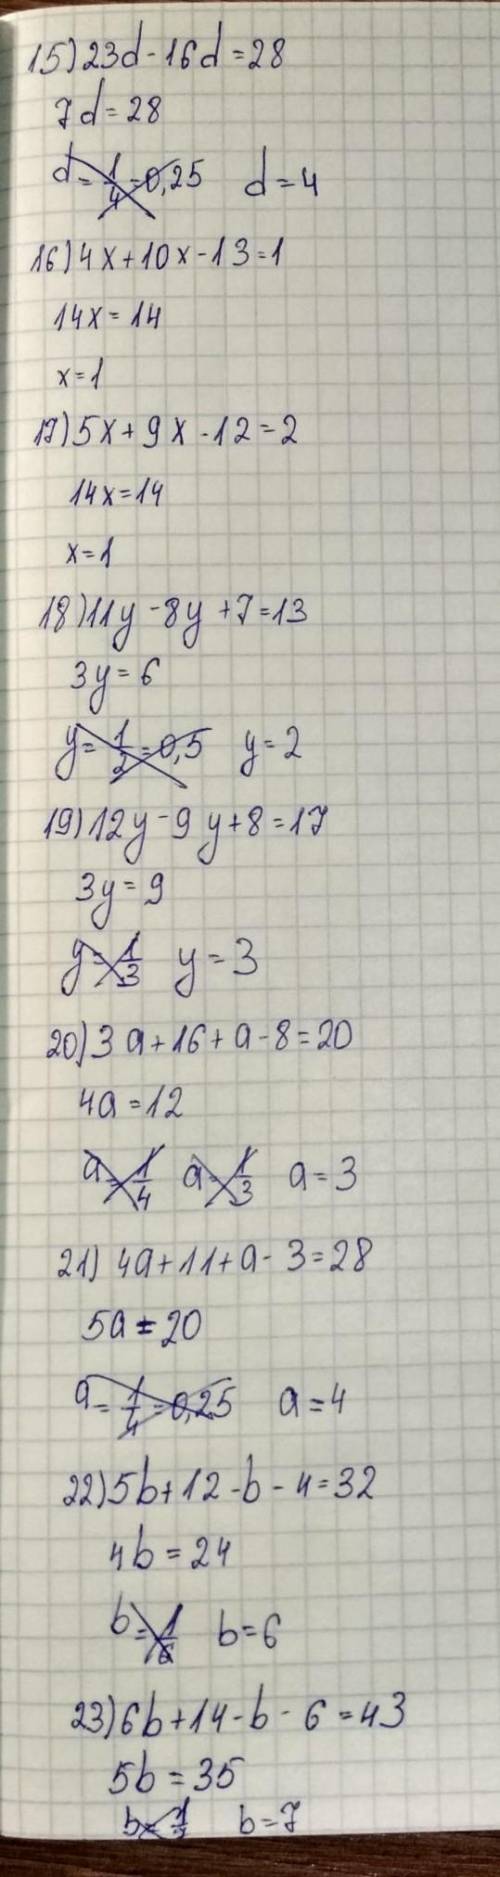 15) 23d - 16d = 28
7d = 28
d = 1/4 = 0,25 d = 4
16) 4x + 10x - 13 = 1
14x = 14
x = 1
17) 5x + 9x - 12 = 2
14x = 14
x = 1
18) 11y - 8y + 7 = 13
3y = 6
y = 1/2 = 0,5 y = 2
19) 12y - 9y + 8 = 17
3y = 9
y = 1/3 y = 3
20) 3a + 16 + a - 8 = 20
4a = 12
a = 1/4 a = 1/3 a = 3
21) 4a + 11 + a - 3 = 28
5a = 20
a = 1/4 = 0,25 a = 4
22) 5b + 12 - b - 4 = 32
4b = 24
b = 1/6 b = 6
23) 6b + 14 - b - 6 = 43
5b = 35
b = 1/7 b = 7